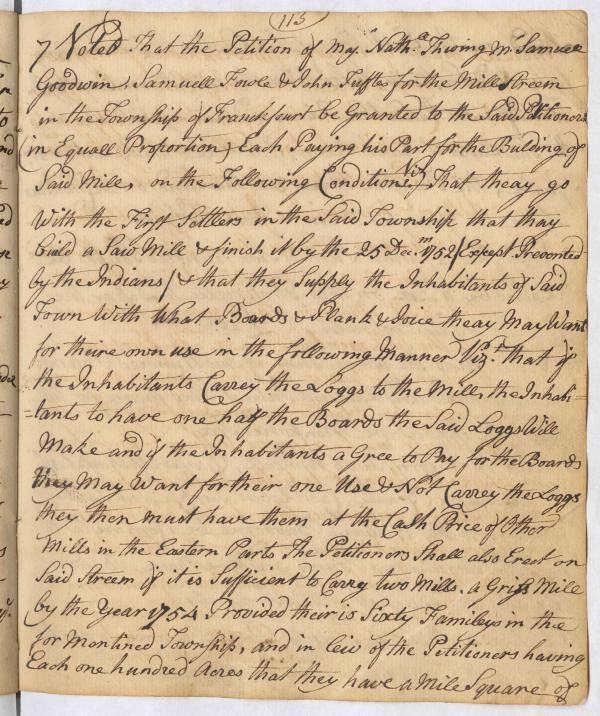 113
7 Voted That the Petition of Majr Nathll Thwing Mr Samuel
Goodwin, Samuell Fowle & John Tuffts for the Mill Streem
in the Township of Franckfuurt be Granted to the Said Petitioners
(in Equall Proportion) Each Paying his Part for the Bulding of
Said Mill, on the Following Conditions Viz That theay go
With the First Settlers in the Said Township that thay
build a Saw Mill & finish it by the 25 Decm 1752 (Except Prevented
by the Indians / & that they Supply the Inhabitants of Said
Town With What Boards & Plank & Joice theay May Want
for theire own use in the following Manner Vizt that if
the Inhabitants Carrey the Loggs to the Mill, the Inhabi=
=tants to have one half the Boards the Said Loggs Will
Make and if the Inhabitants a Gree to Pay for the Boards
they May Want for their one Use & Not Carrey the Loggs
they then must have them at the Cash Price of Other
Mills in the Eastern Parts The Petitioners Shall also Erect on
Said Streem if it is Sufficient to Carry two Mills. a Griss Mill
by the Year 1754 Provided their is Sixty Famileys in the
for Mentined Township, and in leiv of the Petitioners having
Each one hundred Acres that they have a Mile Square of